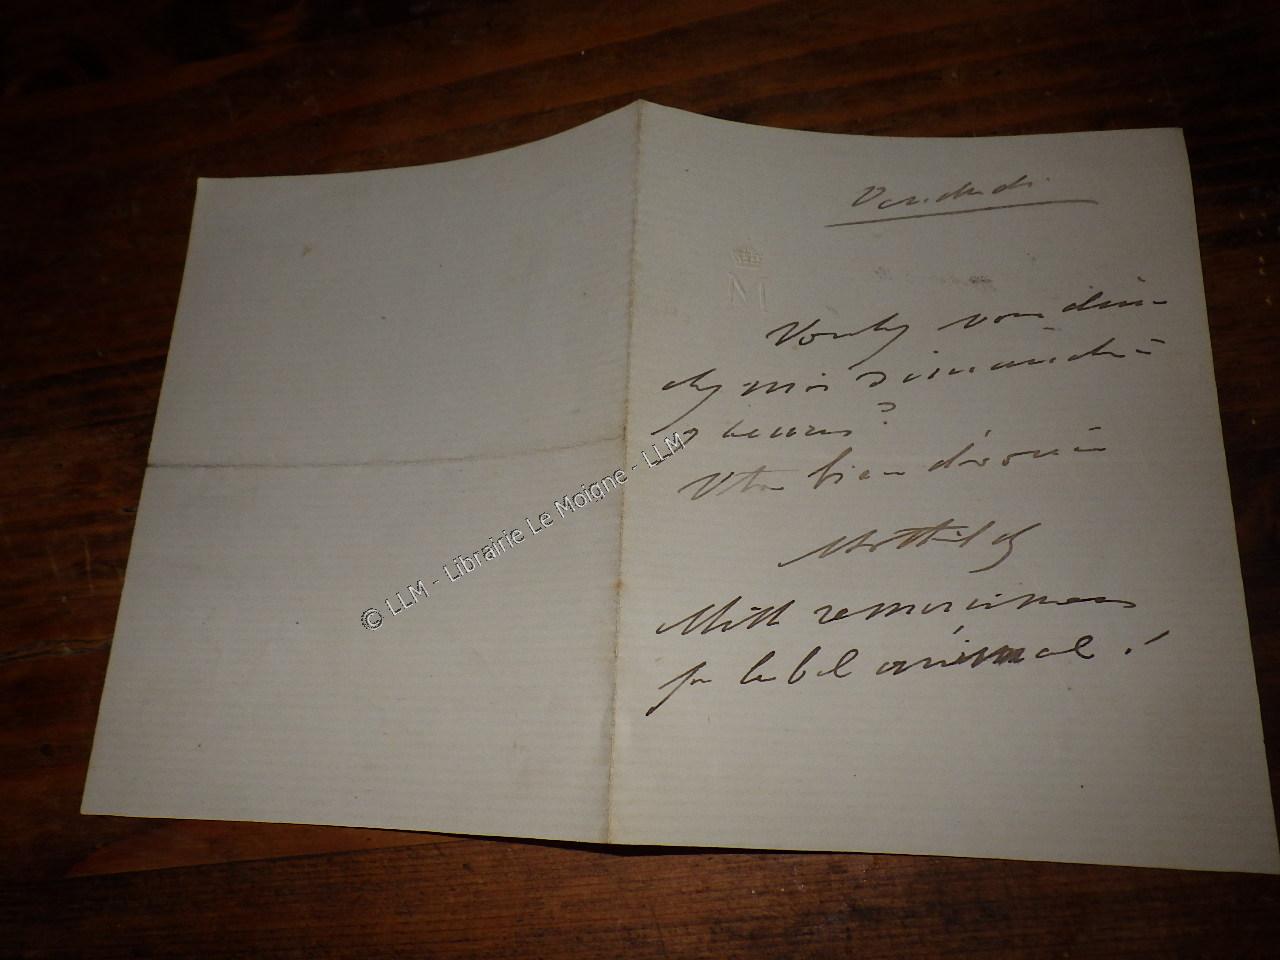 Vendredi
M
Voulez vous dîner
chez moi Dimanche à
7 heures ?
Votre bien dévouée
Mathilde
Mille remerciemens
pour le bel animal !
© LLM - Librairie Le Moigne - LLM